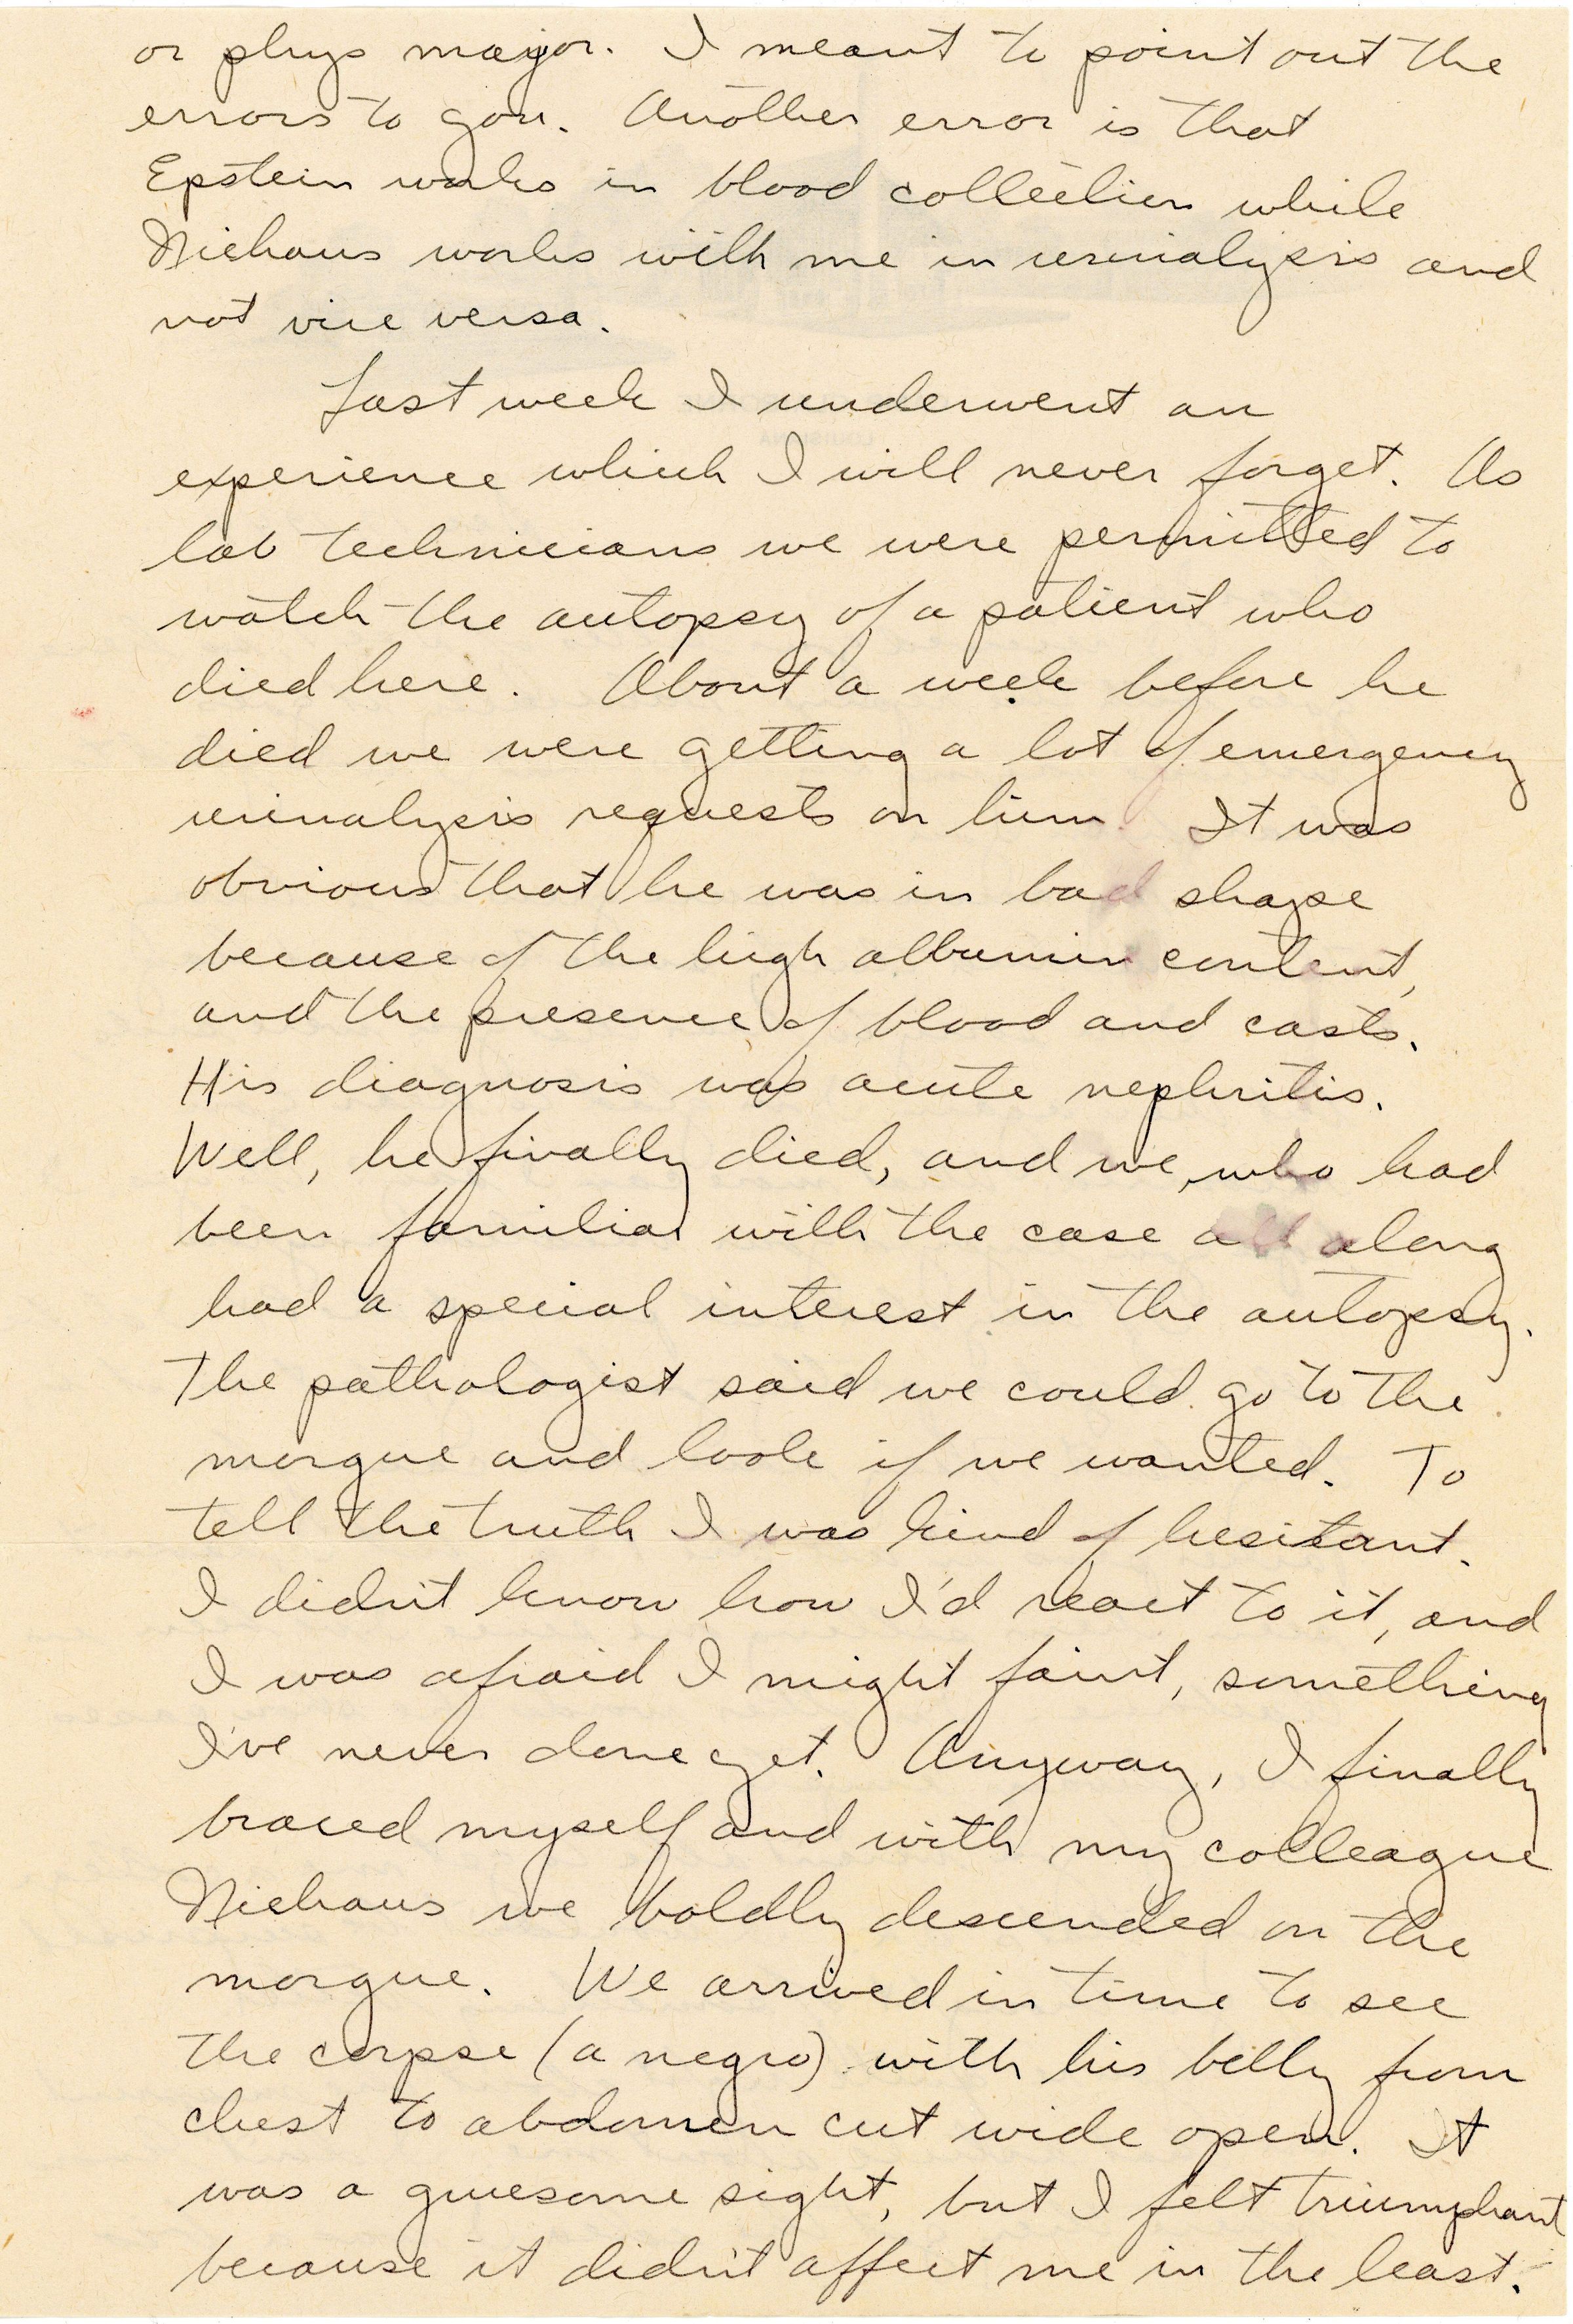 or phys major. I meant to point out the
errors to you. Another error is that
Epstein works in blood collection while
Niehaus works with me in urinalysis and
not vice versa.
Last week I underwent an
experience which I will never forget. As
lab technicians we were permitted to
watch the autopsy of a patient who
died here. About a week before he
died we were getting a lot of emergency
urinalysis requests on him. It was
obvious that he was in bad shape
because of the high albumin content,
and the presence of blood and casts.
His diagnosis was acute nephritis.
Well, he finally died, and we, who had
been familiar with the case all along
had a special interest in the autopsy.
The pathologist said we could go to the
morgue and look if we wanted. To
tell the truth I was kind of hesitant.
I didn't know how I'd react to it, and
I was afraid I might faint, something
I've never done yet. Anyway, I finally
braced myself and with my colleague
Niehaus we boldly descended on the
morgue. We arrived in time to see
the corpse (a negro) with his belly from
chest to abdomen cut wide open. It
was a gruesome sight, but I felt triumphant
because it didn't affect me in the least.